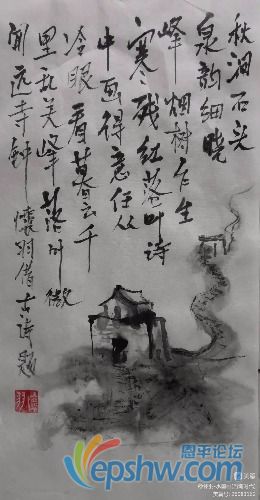 秋涧石头
泉韵细晓
峰烟树乍生
寒残红落叶诗
中画得意任从
冷眼看暮云千
里乱吴峰落叶微
闻远寺钟 懷羽借古诗题
恩平论坛
epshw.com